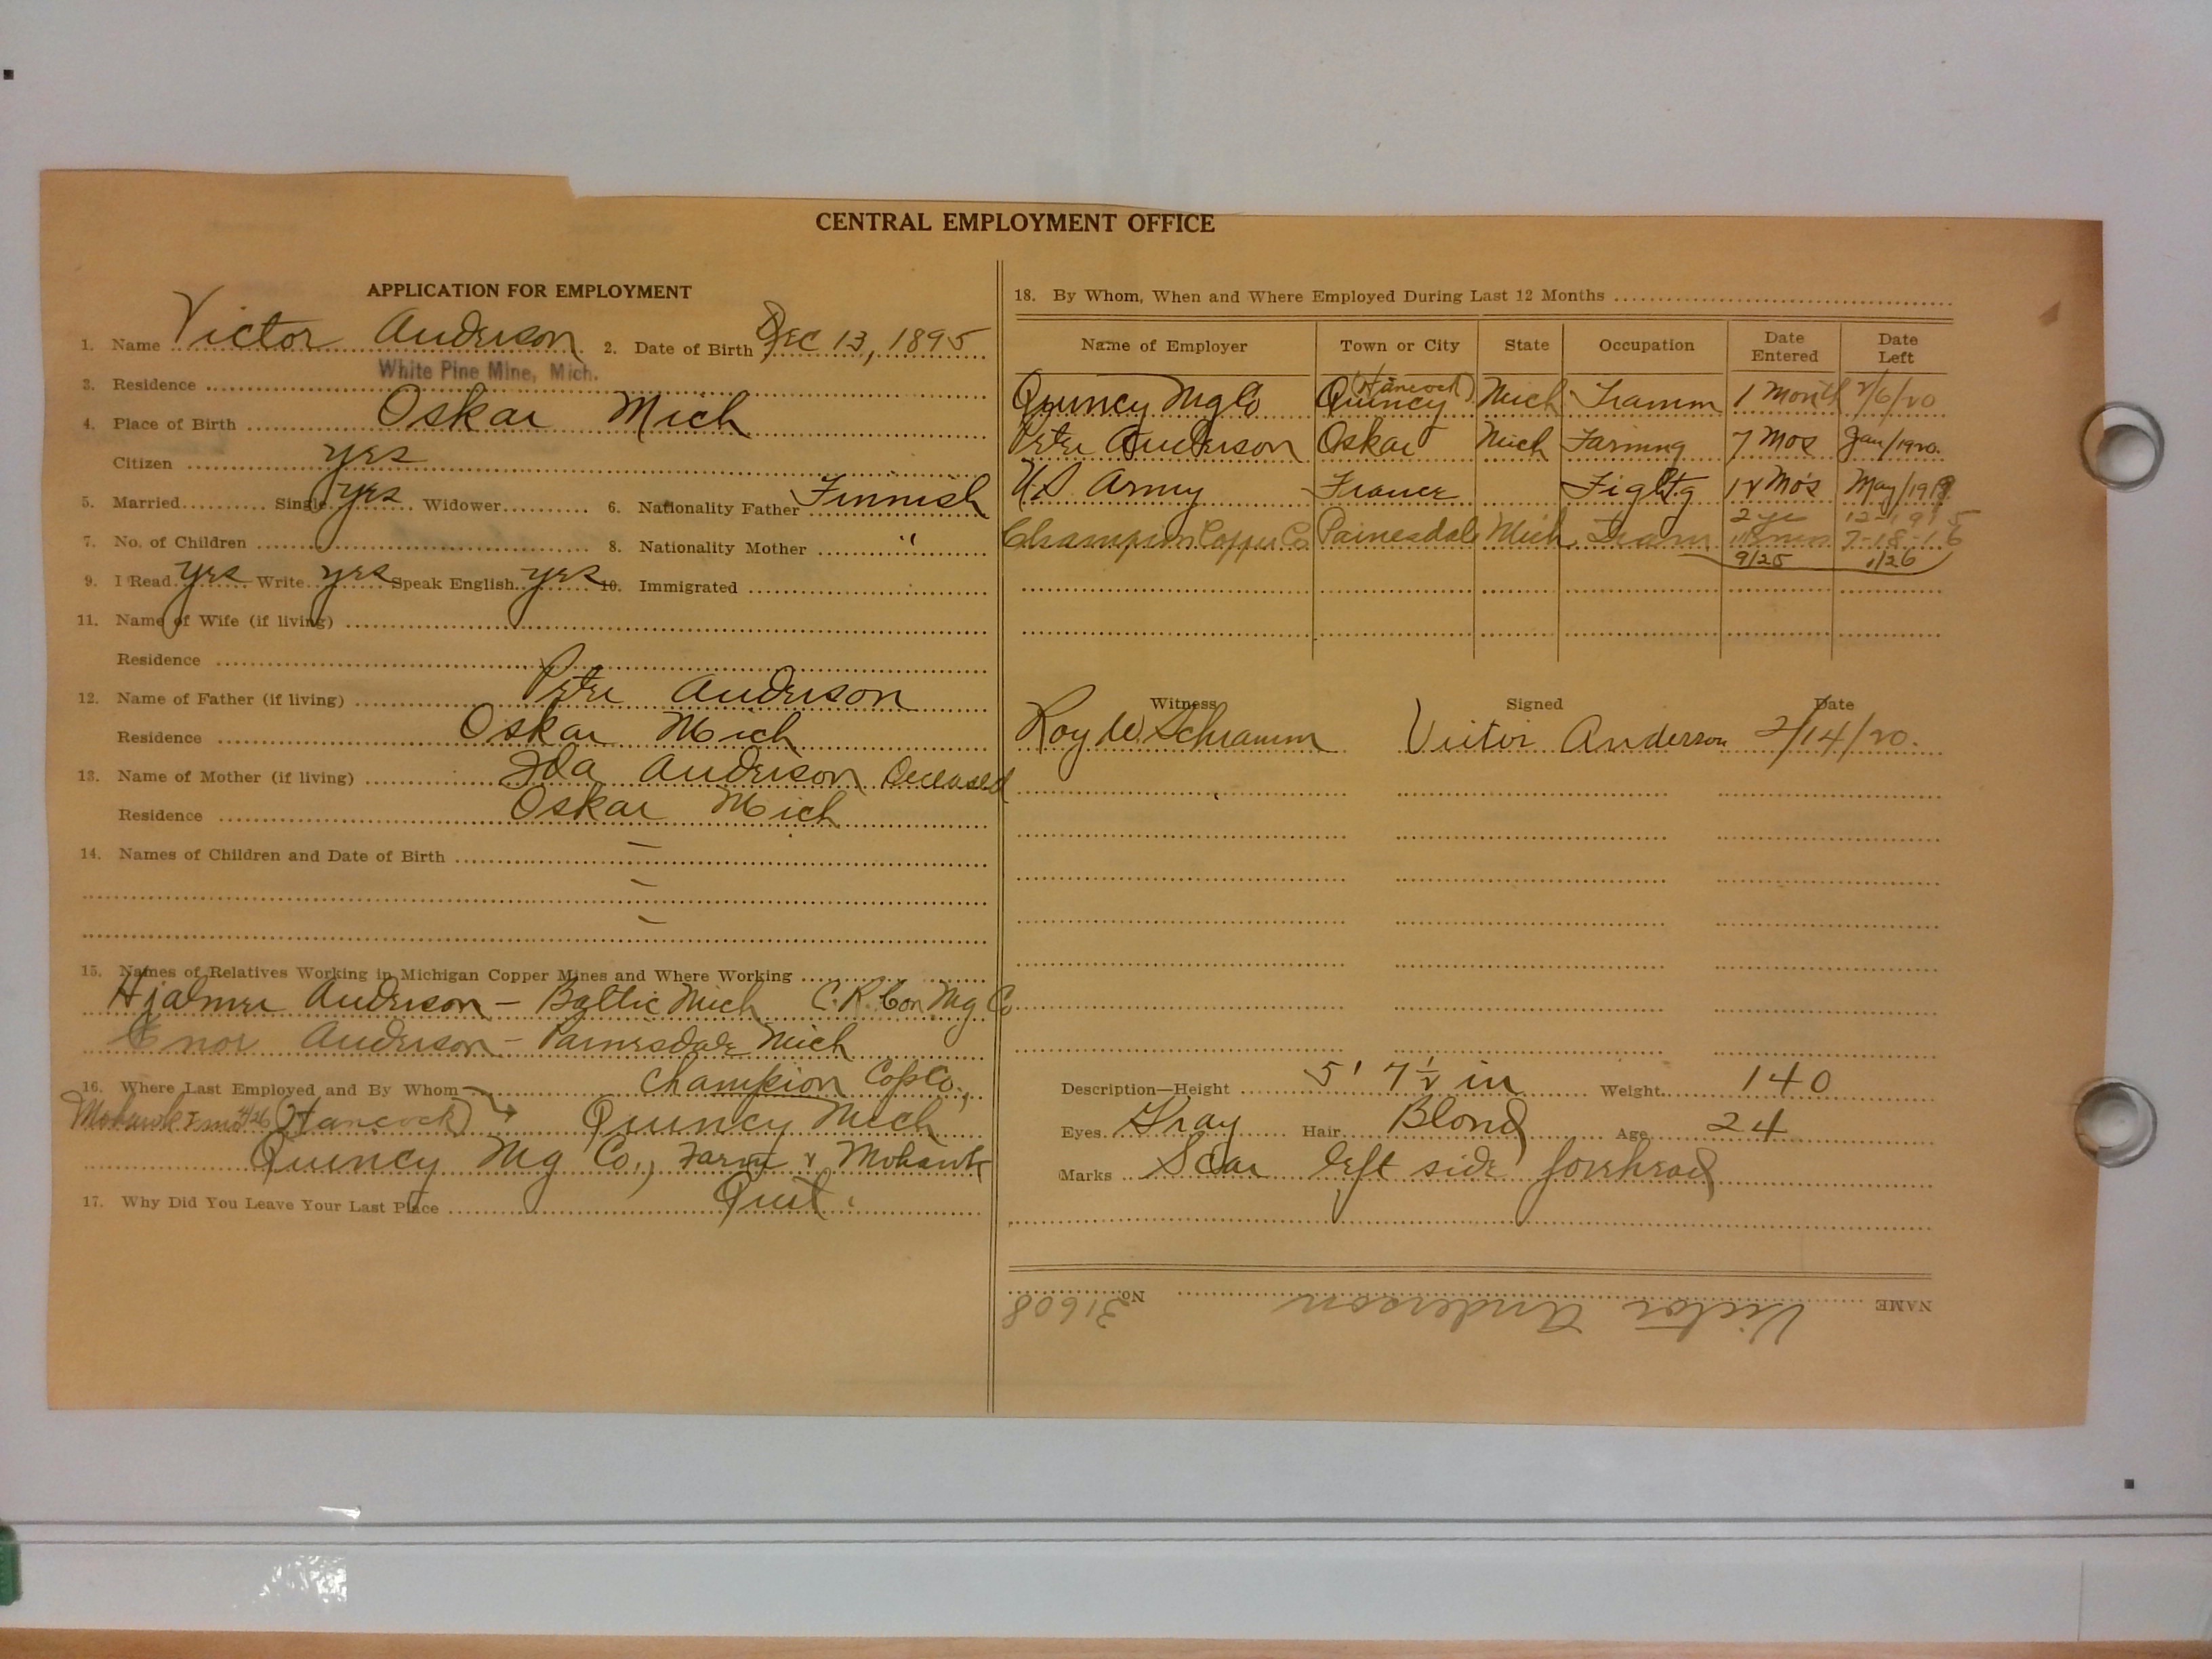 CENTRAL EMPLOYMENT OFFICE
APPLICATION FOR EMPLOYMENT
1. Name Victor Anderson 2. Date of Birth Dec 13, 1895
White Pine Mine, Mich.
3. Residence
4. Place of Birth Oskar Mich
Citizen yes
5. Married Single yes Widower 6. Nationality Father Finnish
7. No. of Children 8. Nationality Mother "
9. I Read yes Write yes Speak English yes 10. Immigrated
11. Name of Wife (if living)
Residence
12. Name of Father (if living) Peter Anderson
Residence Oskar Mich
13. Name of Mother (if living) Ida Anderson Deceased
Residence Oskar Mich
14. Names of Children and Date of Birth —
—
—
15. Names of Relatives Working in Michigan Copper Mines and Where Working
Hjalmer Anderson - Baltic Mich C.R. Con Mg Co
Enor Anderson - Painesdale Mich
16. Where Last Employed and By Whom Champion Cop Co.,
Mohawk (Hancock) Quincy Mich
Quincy Mg Co., Farm & Mohawk
17. Why Did You Leave Your Last Place Quit
18. By Whom, When and Where Employed During Last 12 Months
Name of Employer Town or City State Occupation Date Entered Date Left
Quincy Mg Co (Hancock) Quincy Mich Tramm 1 Month 2/6/20
Peter Anderson Oskar Mich Farming 7 Mos Jan/1920.
U.S. Army France Fightg 12 Mos May/1919
Champion Copper Co Painesdale Mich Tram 2 yr 7-18-16
9/25 1/26
Witness Signed Date
Roy W. Schramm Victor Anderson 2/14/20.
Description—Height 5' 7 1/2 in Weight 140
Eyes Gray Hair Blond Age 24
Marks Scar left side forehead
NAME Victor Anderson No. 31608